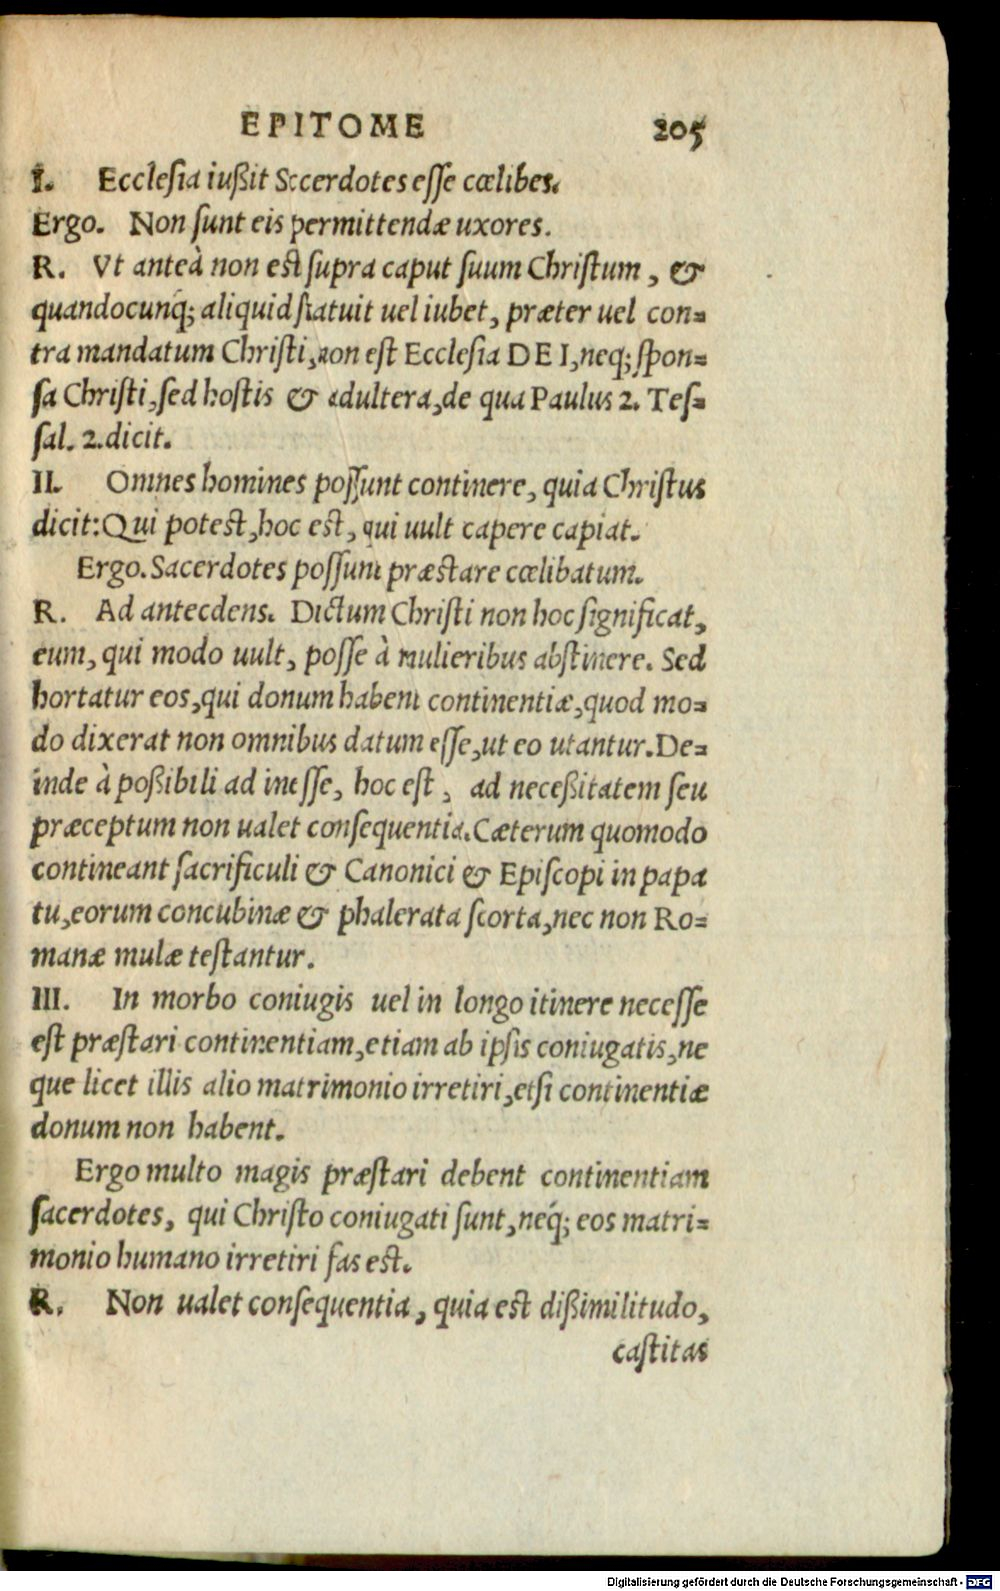 EPITOME 205
I. Ecclesia iußit Sccerdotes esse cœlibes.
Ergo. Non sunt eis permittendæ uxores.
R. Vt anteà non est supra caput suum Christum, &
quandocunq; aliquid statuit uel iubet, præter uel con=
tra mandatum Christi, non est Ecclesia DEI, neq; spon=
sa Christi, sed hostis & adultera, de qua Paulus 2. Tes=
sal. 2. dicit.
II. Omnes homines possunt continere, quia Christus
dicit: Qui potest, hoc est, qui uult capere capiat.
Ergo. Sacerdotes possunt præstare cœlibatum.
R. Ad antecdens. Dictum Christi non hoc significat,
eum, qui modo uult, posse à mulieribus abstinere. Sed
hortatur eos, qui donum habent continentiæ, quod mo=
do dixerat non omnibus datum esse, ut eo utantur. De=
inde à poßibili ad inesse, hoc est, ad neceßitatem seu
præceptum non ualet consequentia. Cæterum quomodo
contineant sacrificuli & Canonici & Episcopi in papa
tu, eorum concubinæ & phalerata scorta, nec non Ro=
manæ mulæ testantur.
III. In morbo coniugis uel in longo itinere necesse
est præstari continentiam, etiam ab ipsis coniugatis, ne
que licet illis alio matrimonio irretiri, etsi continentiæ
donum non habent.
Ergo multo magis præstari debent continentiam
sacerdotes, qui Christo coniugati sunt, neq́; eos matri=
monio humano irretiri fas est.
R. Non ualet consequentia, quia est dißimilitudo,
castitas
Digitalisierung gefördert durch die Deutsche Forschungsgemeinschaft - DFG